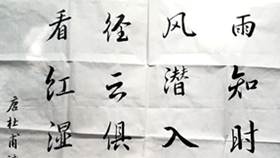 雨知时
风潜入
径云俱
看红湿
唐杜甫